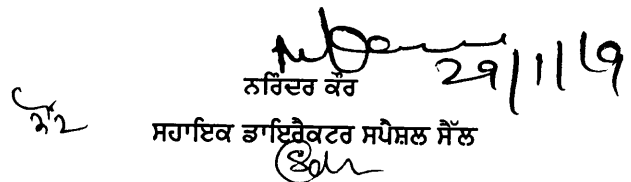 29/1/19
ਨਰਿੰਦਰ ਕੌਰ
ਸਹਾਇਕ ਡਾਇਰੈਕਟਰ ਸਪੈਸ਼ਲ ਸੈੱਲ